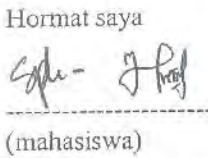 Hormat saya
(mahasiswa)